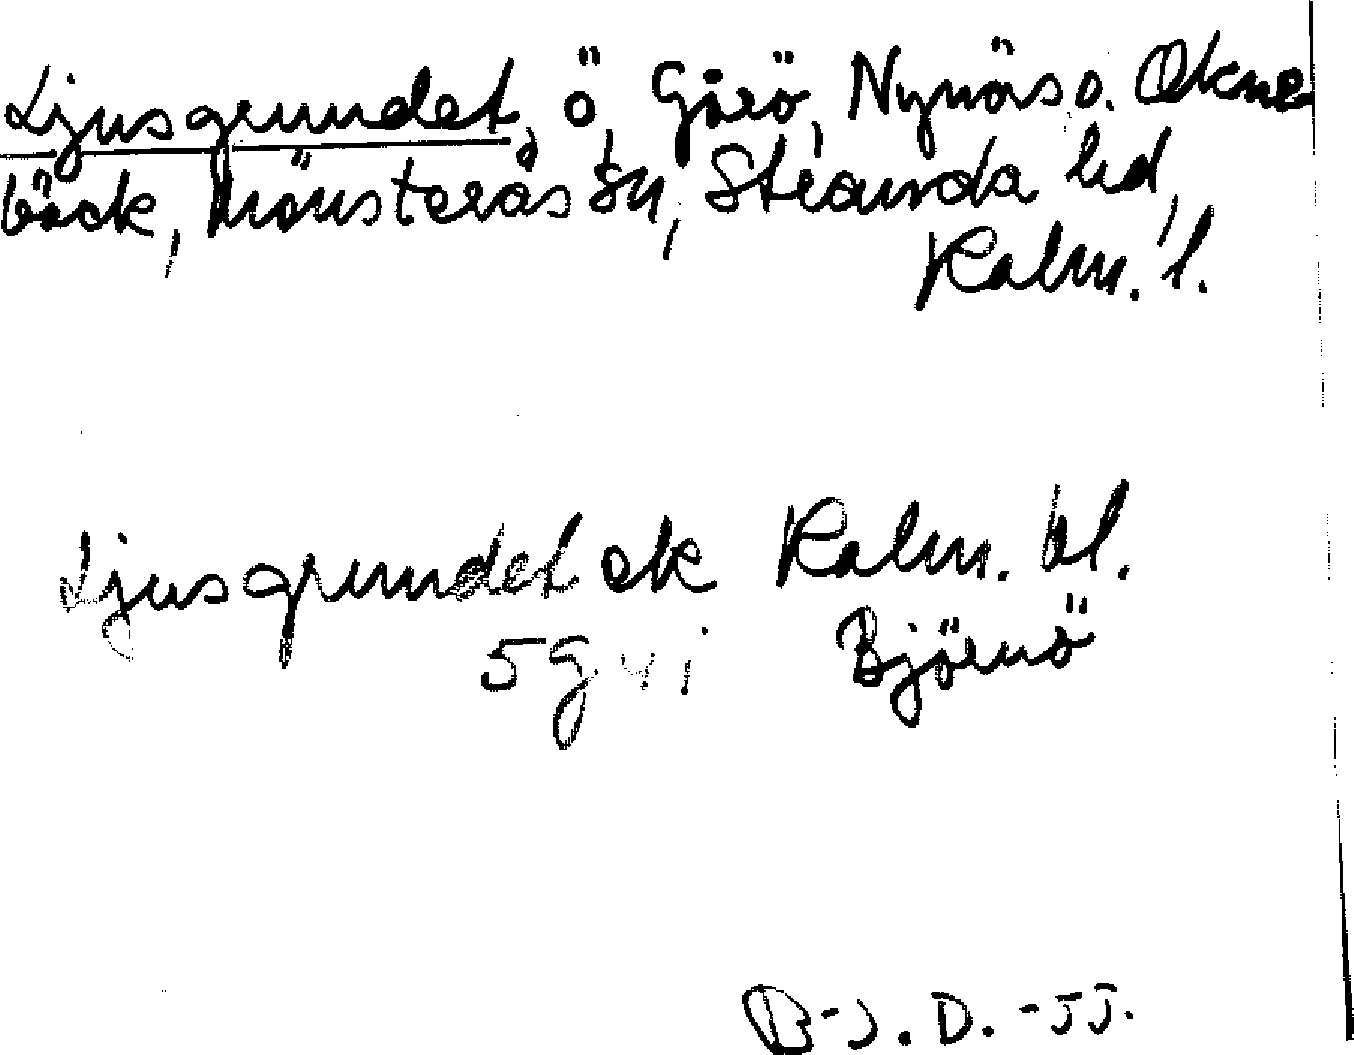 Ljusgrundet, ö, Gårö, Nynäs o. Okne
bäck, Mönsterås sn, Stranda hd,
Kalm. l.
Ljusgrundet ek Kalm. bl.
5 g v i Björnö
B-J. D. -55.